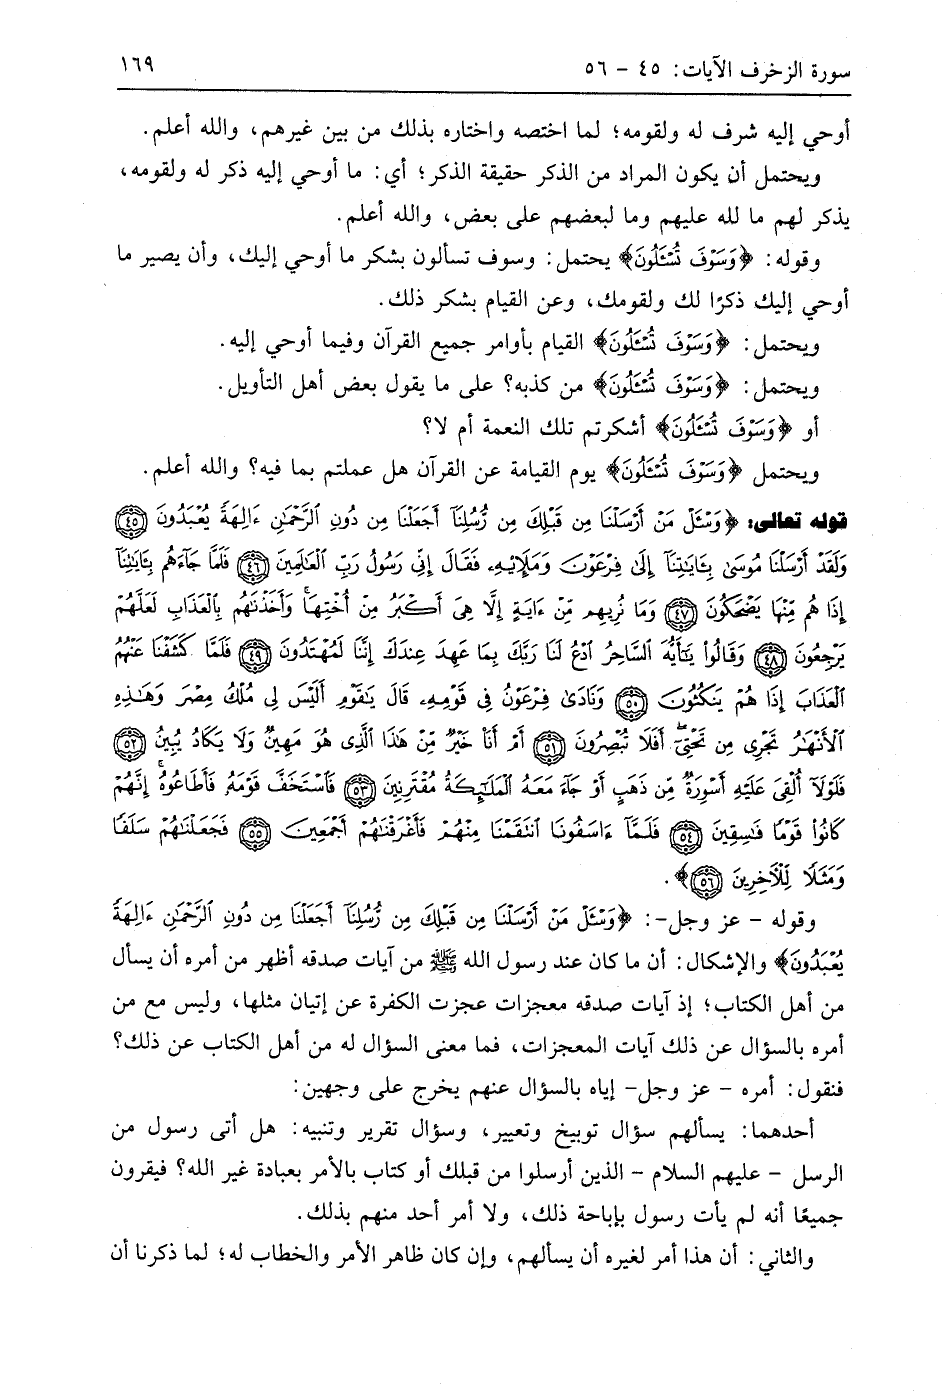 سورة الزخرف الآيات: ٤٥ - ٥٦ ١٦٩
أوحي إليه شرف له ولقومه؛ لما اختصه واختاره بذلك من بين غيرهم، والله أعلم.
ويحتمل أن يكون المراد من الذكر حقيقة الذكر؛ أي: ما أوحي إليه ذكر له ولقومه،
يذكر لهم ما لله عليهم وما لبعضهم على بعض، والله أعلم.
وقوله: ﴿وَسَوْفَ تُسْـَٔلُونَ﴾ يحتمل: وسوف تسألون بشكر ما أوحي إليك، وأن يصير ما
أوحي إليك ذكرًا لك ولقومك، وعن القيام بشكر ذلك.
ويحتمل: ﴿وَسَوْفَ تُسْـَٔلُونَ﴾ القيام بأوامر جميع القرآن وفيما أوحي إليه.
ويحتمل: ﴿وَسَوْفَ تُسْـَٔلُونَ﴾ من كذبه؟ على ما يقول بعض أهل التأويل.
أو ﴿وَسَوْفَ تُسْـَٔلُونَ﴾ أشكرتم تلك النعمة أم لا؟
ويحتمل ﴿وَسَوْفَ تُسْـَٔلُونَ﴾ يوم القيامة عن القرآن هل عملتم بما فيه؟ والله أعلم.
قوله تعالى: ﴿وَسْـَٔلْ مَنْ أَرْسَلْنَا مِن قَبْلِكَ مِن رُّسُلِنَآ أَجَعَلْنَا مِن دُونِ ٱلرَّحْمَٰنِ ءَالِهَةً يُعْبَدُونَ ٤٥
وَلَقَدْ أَرْسَلْنَا مُوسَىٰ بِـَٔايَٰتِنَآ إِلَىٰ فِرْعَوْنَ وَمَلَإِيْهِۦ فَقَالَ إِنِّى رَسُولُ رَبِّ ٱلْعَٰلَمِينَ ٤٦ فَلَمَّا جَآءَهُم بِـَٔايَٰتِنَآ
إِذَا هُم مِّنْهَا يَضْحَكُونَ ٤٧ وَمَا نُرِيهِم مِّنْ ءَايَةٍ إِلَّا هِىَ أَكْبَرُ مِنْ أُخْتِهَا ۖ وَأَخَذْنَٰهُم بِٱلْعَذَابِ لَعَلَّهُمْ
يَرْجِعُونَ ٤٨ وَقَالُوا۟ يَٰٓأَيُّهَ ٱلسَّاحِرُ ٱدْعُ لَنَا رَبَّكَ بِمَا عَهِدَ عِندَكَ إِنَّنَا لَمُهْتَدُونَ ٤٩ فَلَمَّا كَشَفْنَا عَنْهُمُ
ٱلْعَذَابَ إِذَا هُمْ يَنكُثُونَ ٥٠ وَنَادَىٰ فِرْعَوْنُ فِى قَوْمِهِۦ قَالَ يَٰقَوْمِ أَلَيْسَ لِى مُلْكُ مِصْرَ وَهَٰذِهِ
ٱلْأَنْهَٰرُ تَجْرِى مِن تَحْتِىٓ ۖ أَفَلَا تُبْصِرُونَ ٥١ أَمْ أَنَا۠ خَيْرٌ مِّنْ هَٰذَا ٱلَّذِى هُوَ مَهِينٌ وَلَا يَكَادُ يُبِينُ ٥٢
فَلَوْلَآ أُلْقِىَ عَلَيْهِ أَسْوِرَةٌ مِّن ذَهَبٍ أَوْ جَآءَ مَعَهُ ٱلْمَلَٰٓئِكَةُ مُقْتَرِنِينَ ٥٣ فَٱسْتَخَفَّ قَوْمَهُۥ فَأَطَاعُوهُ ۚ إِنَّهُمْ
كَانُوا۟ قَوْمًا فَٰسِقِينَ ٥٤ فَلَمَّآ ءَاسَفُونَا ٱنتَقَمْنَا مِنْهُمْ فَأَغْرَقْنَٰهُمْ أَجْمَعِينَ ٥٥ فَجَعَلْنَٰهُمْ سَلَفًا
وَمَثَلًا لِّلْـَٔاخِرِينَ ٥٦﴾.
وقوله - عز وجل-: ﴿وَسْـَٔلْ مَنْ أَرْسَلْنَا مِن قَبْلِكَ مِن رُّسُلِنَآ أَجَعَلْنَا مِن دُونِ ٱلرَّحْمَٰنِ ءَالِهَةً
يُعْبَدُونَ﴾ والإشكال: أن ما كان عند رسول الله ﷺ من آيات صدقه أظهر من أمره أن يسأل
من أهل الكتاب؛ إذ آيات صدقه معجزات عجزت الكفرة عن إتيان مثلها، وليس مع من
أمره بالسؤال عن ذلك آيات المعجزات، فما معنى السؤال له من أهل الكتاب عن ذلك؟
فنقول: أمره - عز وجل- إياه بالسؤال عنهم يخرج على وجهين:
أحدهما: يسألهم سؤال توبيخ وتعيير، وسؤال تقرير وتنبيه: هل أتى رسول من
الرسل - عليهم السلام - الذين أرسلوا من قبلك أو كتاب بالأمر بعبادة غير الله؟ فيقرون
جميعًا أنه لم يأت رسول بإباحة ذلك، ولا أمر أحد منهم بذلك.
والثاني: أن هذا أمر لغيره أن يسألهم، وإن كان ظاهر الأمر والخطاب له؛ لما ذكرنا أن